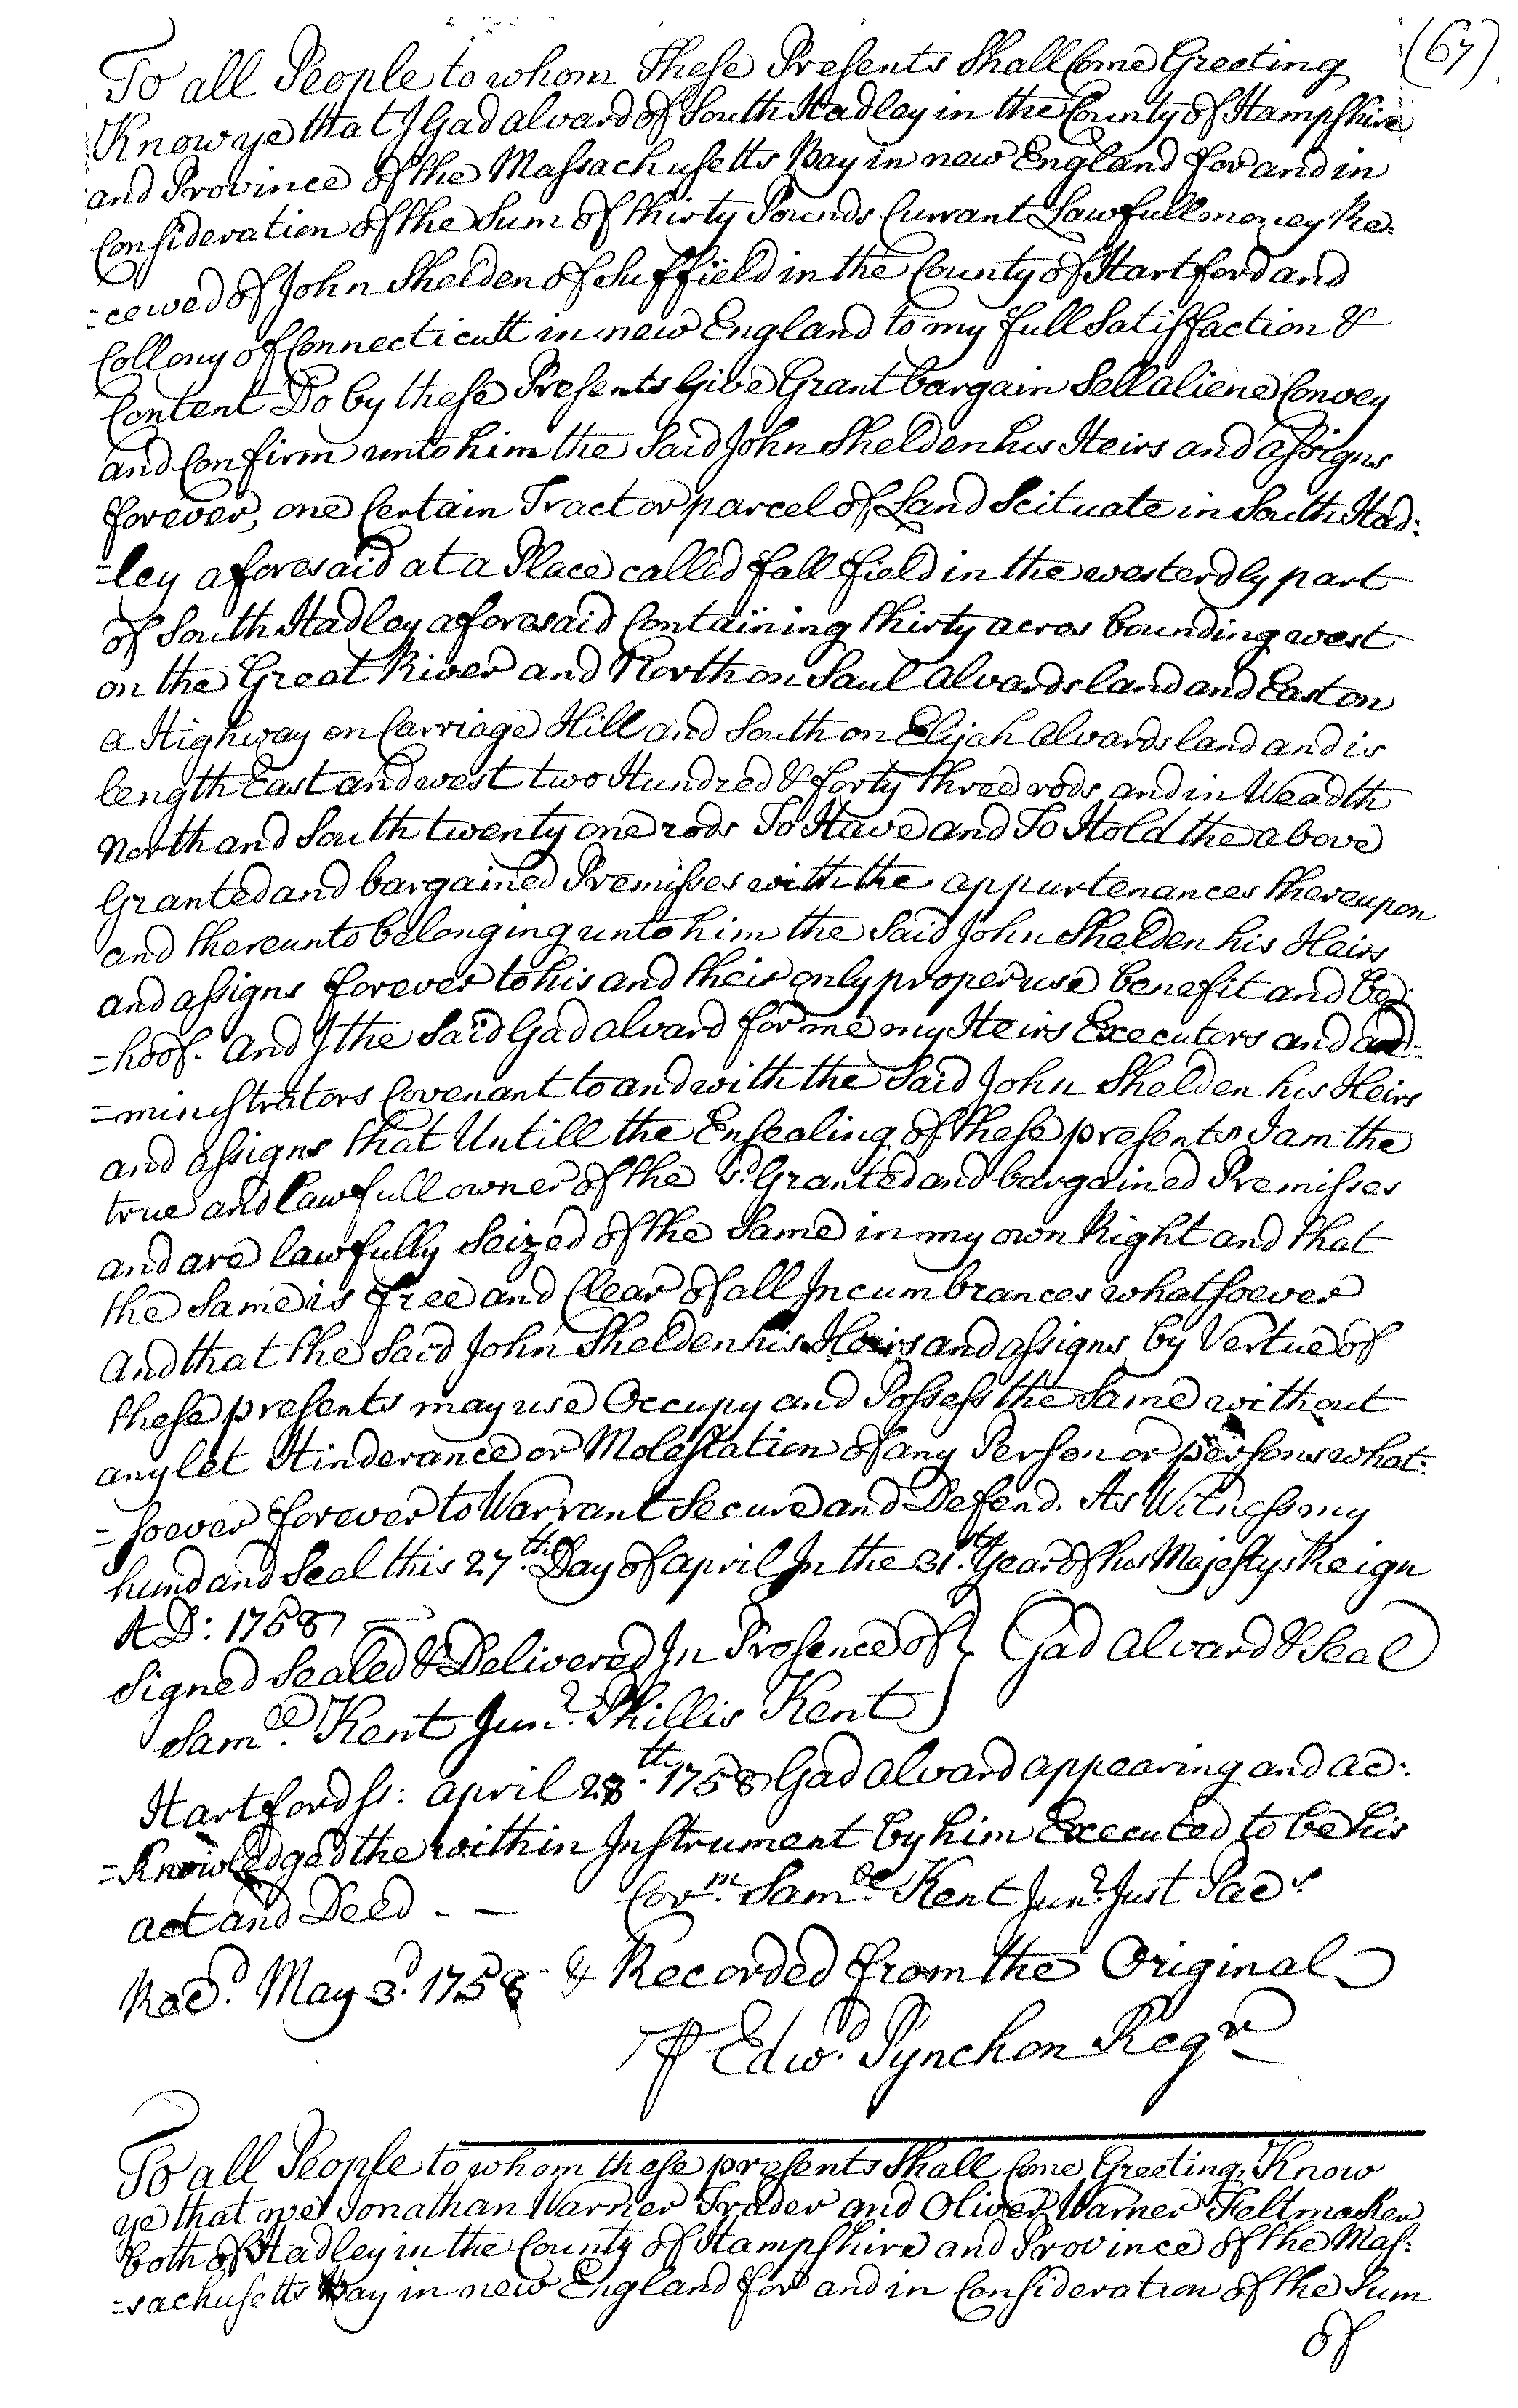 (67)
To all People to whom These Presents Shall Come Greeting
Know ye that I Gad alvard of South Hadley in the County of Hampshire
and Province of the Massachusetts Bay in new England for and in
Consideration of the Sum of thirty Pounds Currant Lawfull money Re-
=ceived of John Shelden of Suffield in the County of Hartford and
Collony of Connecticutt in new England to my full Satisfaction &
Content Do by these Presents Give Grant bargain Sell aliene Convey
and Confirm unto him the Said John Shelden his Heirs and assigns
forever, one Certain Tract or parcel of Land Scituate in South Had:
=ley aforesaid at a Place called fall field in the westerdly part
of South Hadley aforesaid Containing thirty acres bounding west
on the Great River and North on Saul alvards land and East on
a Highway on Carriage Hill and South on Elijah alvards land and is
length East and west two Hundred & forty three rods and in Weadth
North and South twenty one rods To Have and To Hold the above
Granted and bargained Premisses with the appurtenances thereupon
and thereunto belonging unto him the Said John Shelden his Heirs
and assigns forever to his and their only proper use benefit and be:
=hoof. And I the Said Gad alvard for me my Heirs Executors and ad:
=ministrators Covenant to and with the Said John Shelden his Heirs
and assigns that Untill the Ensealing of these presents I am the
true and Lawfull owner of the sd. Granted and bargained Premisses
and are lawfully Seized of the Same in my own Right and that
the Same is free and Clear of all Incumbrances whatsoever
And that the Said John Shelden his Heirs and assigns by Vertue of
these presents may use Occupy and Possess the Same without
any let Hinderance or Molestation of any Person or persons what:
=soever forever to Warrant Secure and Defend. As Witness my
hand and Seal this 27.th Day of april In the 31.st Year of his Majestys Reign
A D: 1758
Signed Sealed & Delivered In Presence of } Gad Alvard & Seal
Samll. Kent Junr. Phillis Kent
Hartford Ss: april 28.th 1758 Gad Alvard appearing and ac:
=Knowledged the within Instrument by him Executed to be his
act and Deed - — Corm. Samll. Kent Junr. Just Pacs.
Recd. May 3d. 1758 & Recorded from the Original
⅌ Edwd. Pynchon Regr
To all People to whom these presents Shall Come Greeting, Know
ye that we Jonathan Warner Trader and Oliver Warner Feltmaker
both of Hadley in the County of Hampshire and Province of the Mas:
=sachusetts Bay in new England for and in Consideration of the Sum
of